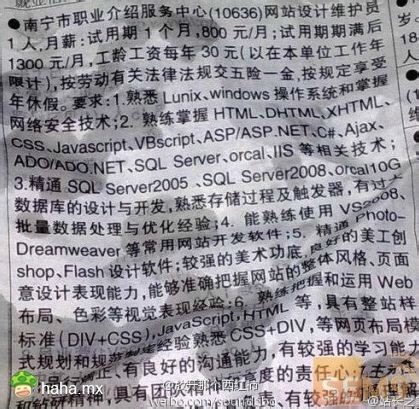 ●南宁市职业介绍服务中心(10636)网站设计维护员
1人,月薪:试用期1个月,800元/月;试用期期满后
1300元/月,工龄工资每年30元(以在本单位工作年
限计),按劳动有关法律法规交五险一金,按规定享受
年休假。要求:1.熟悉Lunix、windows操作系统和掌握
网络安全技术;2.熟练掌握HTML、DHTML、XHTML、
CSS、Javascript、VBscript、ASP/ASP.NET、C#、Ajax、
ADO/ADO.NET、SQL Server、orcal、IIS等相关技术;
3.精通SQL Server2005、SQL Server2008、orcal10G
数据库的设计与开发,熟悉存储过程及触发器,有过
批量数据处理与优化经验;4.能熟练使用VS2008、
Dreamweaver等常用网站开发软件;5.精通Photo-
shop、Flash设计软件;较强的美术功底,良好的美工创
意设计表现能力,能够准确把握网站的整体风格、页面
布局、色彩等视觉表现经验;6.熟练把握和运用Web
标准(DIV+CSS),JavaScript、HTML等,具有整站样
式规划和规范制作经验熟悉CSS+DIV,等网页布局模
正、有良好的沟通能力,有较强的学习能力
和钻研精神,具有团队精神和高度的责任心;7.
haha.mx
weibo.com